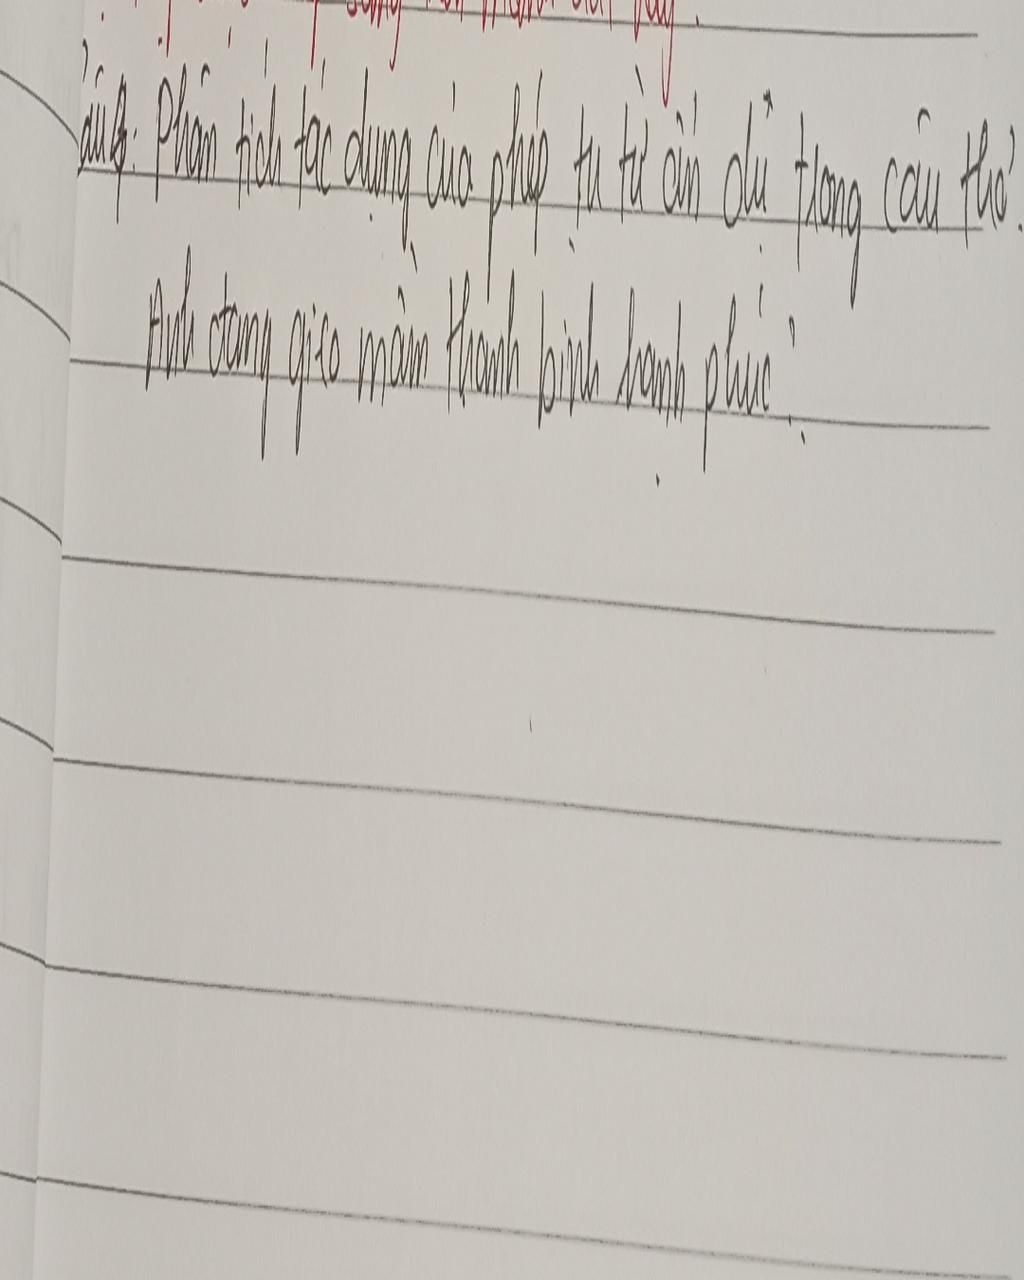 Câu 4: Phân tích tác dụng của phép tu từ ẩn dụ trong câu thơ:
Anh đang gieo mầm thanh bình hạnh phúc